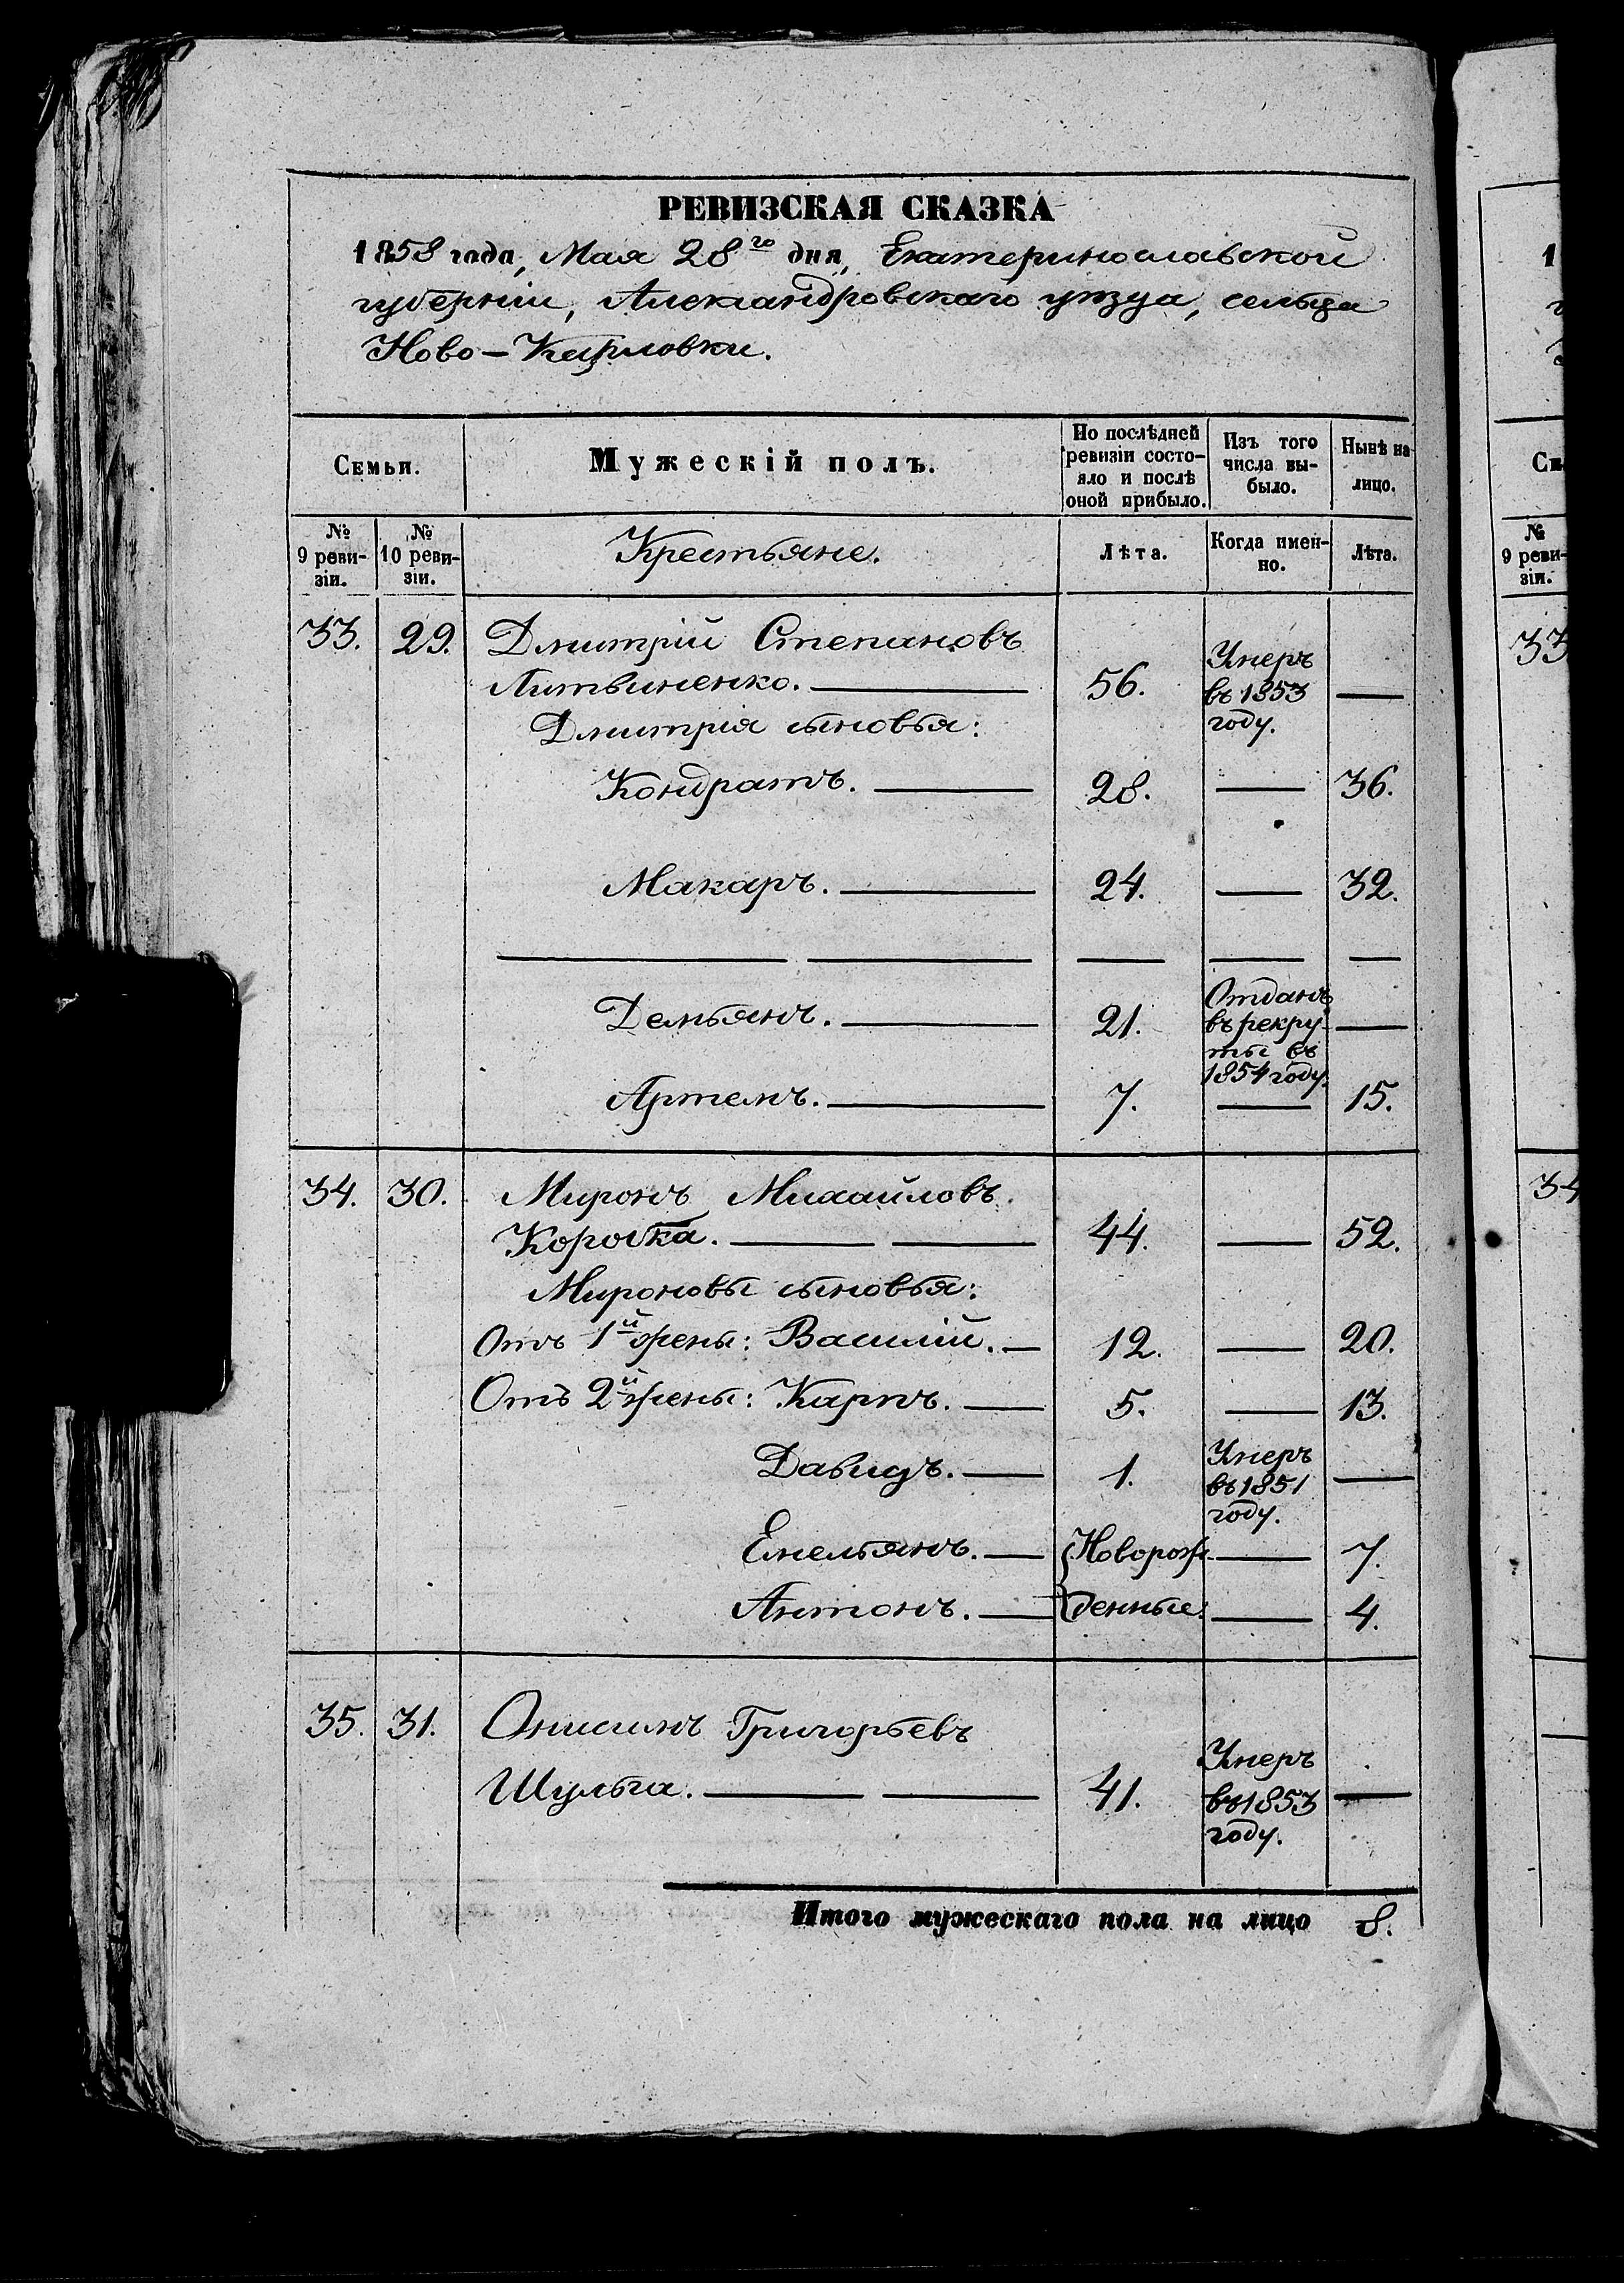 РЕВИЗСКАЯ СКАЗКА
1858 года, Мая 28го дня, Екатеринославской
губерніи, Александровскаго уѣзда, сельца
Ново-Карловки.
Семьи.
Мужескій полъ.
По послѣдней ревизіи состояло и послѣ оной прибыло.
Изъ того числа выбыло.
Нынѣ на лицо.
№ 9 ревизіи.
№ 10 ревизіи.
Крестьяне.
Лѣта.
Когда именно.
Лѣта.
33. 29. Дмитрій Степановъ
Литвиненко. — 56. Умеръ въ 1853 году. —
Дмитрія сыновья:
Кондратъ. — 28. — 36.
Макаръ. — 24. — 32.
Демьянъ. — 21. Отданъ въ рекруты въ 1854 году. —
Артемъ. — 7. — 15.
34. 30. Миронъ Михайловъ
Коробка. — 44. — 52.
Мироновы сыновья:
Отъ 1й жены: Василій. — 12. — 20.
Отъ 2й жены: Карпъ. — 5. — 13.
Давидъ. — 1. Умеръ въ 1851 году. —
Емельянъ. — Новорож- — 7.
Антонъ. — денные. — 4.
35. 31. Онисимъ Григорьевъ
Шульга. — 41. Умеръ въ 1853 году. —
Итого мужескаго пола на лицо 8.
1
Се
№
9 реви-
зіи.
33
34